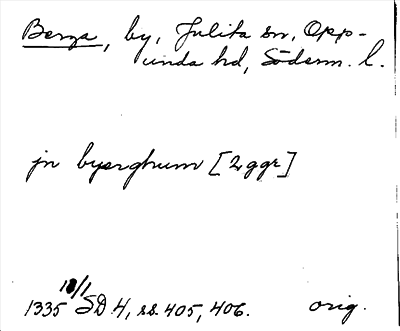 Berga, by, Julita sn, Opp-
unda hd, Söderm. l.
jn byerghum [2 ggr]
18/1
1335 SD 4, ss. 405, 406. orig.